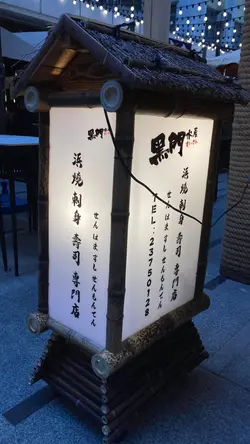 黒門
浜焼刺身 寿司 専門店
せんはますし せんもんてん
黒門水産
浜焼刺身 寿司 専門店
せんはますし せんもんてん
TEL:23750128